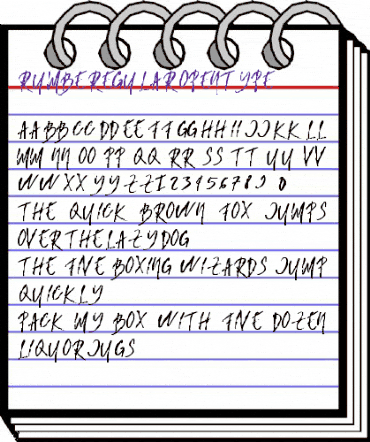 RUMBEREGULAROPENTYPE
AABBCCDDEEFFGGHHIIJJKKLL
MMNNOOPPQQRRSSTTUUVV
WWXXYYZZ1234567890
THE QUICK BROWN FOX JUMPS
OVERTHELAZYDOG
THE FIVE BOXING WIZARDS JUMP
QUICKLY
PACK MY BOX WITH FIVE DOZEN
LIQUORJUGS